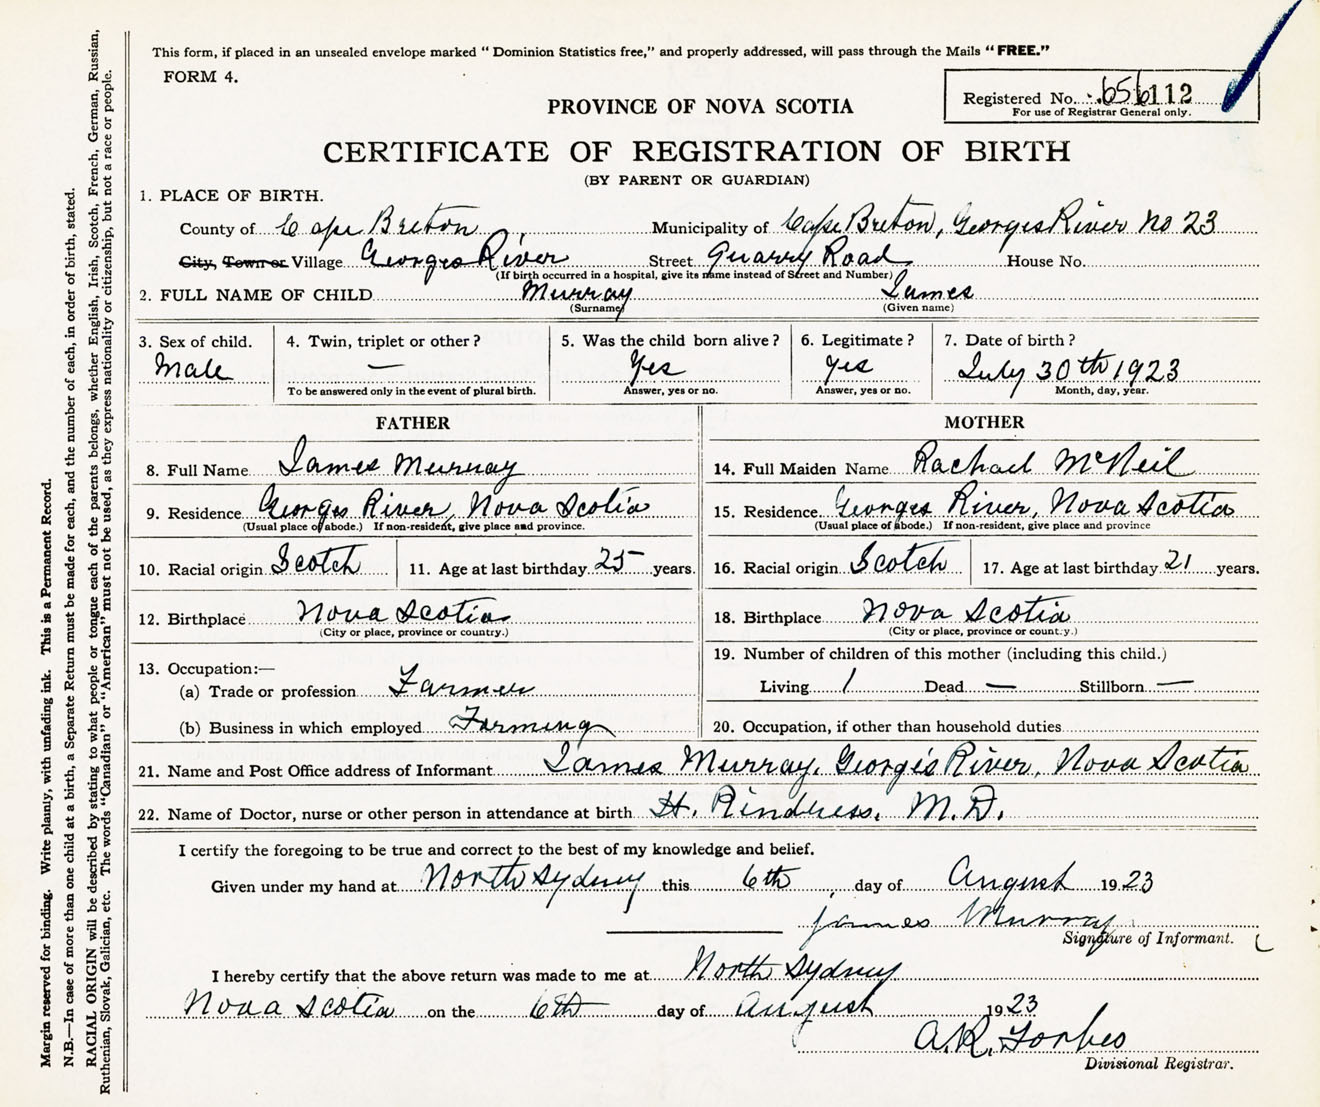 This form, if placed in an unsealed envelope marked "Dominion Statistics free," and properly addressed, will pass through the Mails "FREE."
FORM 4.
PROVINCE OF NOVA SCOTIA
Registered No. 656112
For use of Registrar General only.
CERTIFICATE OF REGISTRATION OF BIRTH
(BY PARENT OR GUARDIAN)
1. PLACE OF BIRTH.
County of Cape Breton Municipality of Cape Breton, Georges River No 23
City, Town or Village Georges River Street Quarry Road House No.
(If birth occurred in a hospital, give its name instead of Street and Number)
2. FULL NAME OF CHILD Murray James
(Surname) (Given name)
3. Sex of child. 4. Twin, triplet or other? 5. Was the child born alive? 6. Legitimate? 7. Date of birth?
Male — Yes Yes July 30th 1923
To be answered only in the event of plural birth. Answer, yes or no. Answer, yes or no. Month, day, year.
FATHER
8. Full Name James Murray
9. Residence Georges River, Nova Scotia
(Usual place of abode.) If non-resident, give place and province.
10. Racial origin Scotch 11. Age at last birthday 25 years.
12. Birthplace Nova Scotia
(City or place, province or country.)
13. Occupation:—
(a) Trade or profession Farmer
(b) Business in which employed Farming
MOTHER
14. Full Maiden Name Rachael McNeil
15. Residence Georges River, Nova Scotia
(Usual place of abode.) If non-resident, give place and province
16. Racial origin Scotch 17. Age at last birthday 21 years.
18. Birthplace Nova Scotia
(City or place, province or country.)
19. Number of children of this mother (including this child.)
Living 1 Dead — Stillborn —
20. Occupation, if other than household duties
21. Name and Post Office address of Informant James Murray, George's River, Nova Scotia
22. Name of Doctor, nurse or other person in attendance at birth H. Rindress, M.D.
I certify the foregoing to be true and correct to the best of my knowledge and belief.
Given under my hand at North Sydney this 6th day of August 1923
James Murray
Signature of Informant.
I hereby certify that the above return was made to me at North Sydney
Nova Scotia on the 6th day of August 1923
A.R. Forbes
Divisional Registrar.
Margin reserved for binding. Write planty, with unfading ink. This is a Permanent Record.
N.B.—In case of more than one child at a birth, a Separate Return must be made for each, and the number of each, in order of birth, stated.
RACIAL ORIGIN will be described by stating to what people or tongue each of the parents belongs, whether English, Irish, Scotch, French, German, Russian,
Ruthenian, Slovak, Galician, etc. The words "Canadian" or "American" must not be used, as they express nationality or citizenship, but not a race or people.